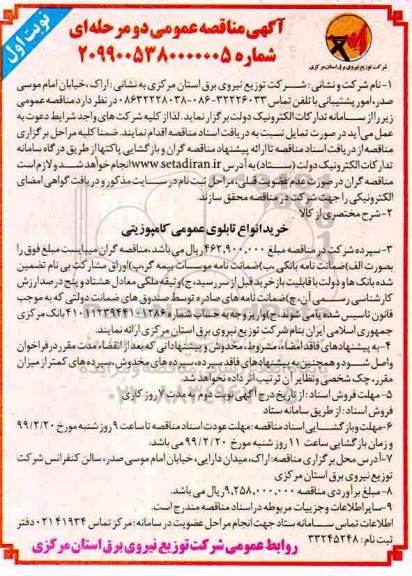 نوبت اول
آگهی مناقصه عمومی دو مرحله‌ای
شماره ۲۰۹۹۰۰۵۳۸۰۰۰۰۰۰۵
شرکت توزیع نیروی برق استان مرکزی
۱-نام شرکت و نشانی: شرکت توزیع نیروی برق استان مرکزی به نشانی: اراک، خیابان امام موسی
صدر، امور پشتیبانی با تلفن تماس ۳۲۲۲۶۰۳۳-۰۸۶-۰۸۶۳۲۲۲۸۰۳۸ در نظر دارد مناقصه عمومی
زیر را از سامانه تدارکات الکترونیک دولت برگزار نماید. لذا از کلیه شرکت های واجد شرایط دعوت به
عمل می آید در صورت تمایل نسبت به دریافت اسناد مناقصه اقدام نمایند. ضمنا کلیه مراحل برگزاری
مناقصه از دریافت اسناد مناقصه تا ارائه پیشنهاد مناقصه گران و بازگشایی پاکتها از طریق درگاه سامانه
تدارکات الکترونیک دولت (ستاد) به آدرس www.setadiran.ir انجام خواهد شد و لازم است
مناقصه گران در صورت عدم عضویت قبلی، مراحل ثبت نام در سایت مذکور و دریافت گواهی امضای
الکترونیکی را جهت شرکت در مناقصه محقق سازند.
۲-شرح مختصری از کالا
خرید انواع تابلوی عمومی کامپوزیتی
۳-سپرده شرکت در مناقصه مبلغ ۴۶۲,۹۰۰,۰۰۰ ریال می باشد، مناقصه گران میبایست مبلغ فوق را
بصورت الف) ضمانت نامه بانکی، ب) ضمانت نامه موسسات بیمه گر پ) اوراق مشارکت بی نام تضمین
شده بانک ها و دولت با قابلیت باز خرید قبل از سررسید، ج) وثیقه ملکی معادل هشتاد و پنج درصد ارزش
کارشناسی رسمی آن، چ) ضمانت نامه های صادره توسط صندوق های ضمانت دولتی که به موجب
قانون تاسیس شده یا می شوند. ح) واریز وجه به حساب شماره ۴۱۰۱۱۲۳۹۴۴۱۰۱۲۸۶ بانک مرکزی
جمهوری اسلامی ایران بنام شرکت توزیع نیروی برق استان مرکزی ارائه نمایند.
۴-به پیشنهادهای فاقد امضاء، مشروط، مخدوش و پیشنهاداتی که بعد از انقضاء مدت مقرر در فراخوان
واصل شود و همچنین به پیشنهادهای فاقد سپرده، سپرده های مخدوش، سپرده های کمتر از میزان
مقرر، چک شخصی و نظایر آن ترتیب اثر داده نخواهد شد.
۵-مهلت فروش اسناد: از تاریخ درج آگهی نوبت دوم به مدت ۷ روز کاری
فروش اسناد: از طریق سامانه ستاد
۶-مهلت و بازگشایی اسناد مناقصه: مهلت عودت اسناد مناقصه تا ساعت ۹ روز شنبه مورخ ۹۹/۲/۲۰
و زمان بازگشایی ساعت ۱۱ روز شنبه مورخ ۹۹/۲/۲۰ می باشد.
۷-آدرس محل برگزاری مناقصه: اراک، میدان دارایی، خیابان امام موسی صدر، سالن کنفرانس شرکت
توزیع نیروی برق استان مرکزی
۸-مبلغ برآوردی مناقصه ۹,۲۵۸,۰۰۰,۰۰۰ ریال می باشد.
۹-سایر اطلاعات و جزییات مربوطه در اسناد مناقصه مندرج است.
اطلاعات تماس سامانه ستاد جهت انجام مراحل عضویت در سامانه: مرکز تماس ۰۲۱۴۱۹۳۴ دفتر
ثبت نام: ۳۳۲۴۵۲۴۸
روابط عمومی شرکت توزیع نیروی برق استان مرکزی